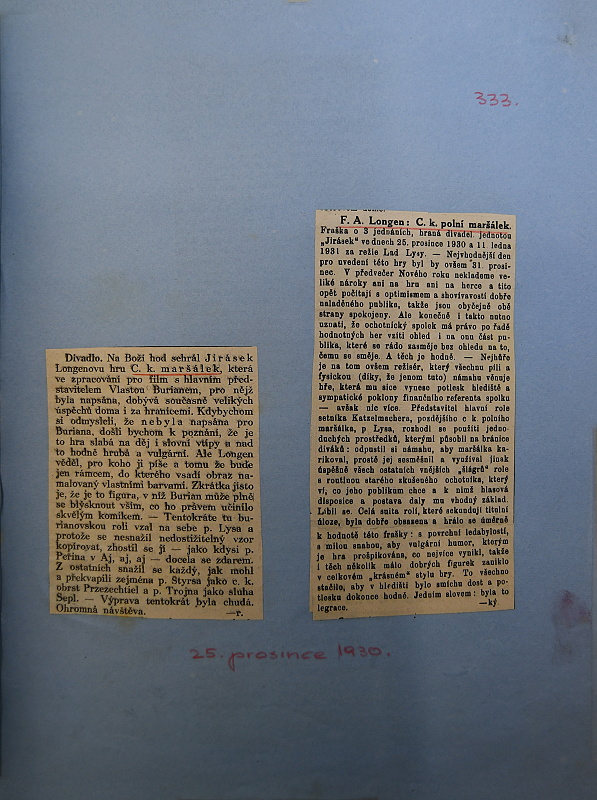 333.
Divadlo. Na Boží hod sehrál Jirásek
Longenovu hru C. k. maršálek, která
ve zpracování pro film s hlavním před-
stavitelem Vlastou Burianem, pro nějž
byla napsána, dobývá současně velikých
úspěchů doma i za hranicemi. Kdybychom
si odmysleli, že nebyla napsána pro
Buriana, došli bychom k poznání, že je
to hra slabá na děj i slovní vtipy a nad
to hodně hrubá a vulgární. Ale Longen
věděl, pro koho ji píše a tomu že bude
jen rámcem, do kterého vsadí obraz na-
malovaný vlastními barvami. Zkrátka jisto
je, že je to figura, v níž Burian může plně
se blýsknout vším, co ho právem učinilo
skvělým komikem. — Tentokráte tu bu-
rianovskou roli vzal na sebe p. Lysa a
protože se nesnažil nedostižitelný vzor
kopírovat, zhostil se jí — jako kdysi p.
Peřina v Aj, aj, aj — docela se zdarem.
Z ostatních snažil se každý, jak mohl
a překvapili zejména p. Štyrsa jako c. k.
obrst Przezechtiel a p. Trojna jako sluha
Sepl. — Výprava tentokrát byla chudá.
Ohromná návštěva. —r.
F. A. Longen: C. k. polní maršálek.
Fraška o 3 jednáních, hraná divadel. jednotou
„Jirásek“ ve dnech 25. prosince 1930 a 11. ledna
1931 za režie Lad Lysy. — Nejvhodnější den
pro uvedení této hry byl by ovšem 31. prosi-
nec. V předvečer Nového roku neklademe ve-
liké nároky ani na hru ani na herce a tito
opět počítají s optimismem a shovívavostí dobře
naladěného publika, takže jsou obyčejně obě
strany spokojeny. Ale konečně i takto nutno
uznati, že ochotnický spolek má právo po řadě
hodnotných her vzíti ohled i na onu část pu-
blika, které se rádo zasměje bez ohledu na to,
čemu se směje. A těch je hodně. — Nejhůře
je na tom ovšem režisér, který všechnu píli a
fysickou (díky, že jenom tuto) námahu věnuje
hře, která mu sice vynese potlesk hlediště a
sympatické poklony finančního referenta spolku
— avšak nic více. Představitel hlavní role
setníka Katzelmachera, pozdějšího c k polního
maršálka, p Lysa, rozhodl se použíti jedno-
duchých prostředků, kterými působil na bránice
diváků: odpustil si námahu, aby maršálka ka-
rikoval, prostě jej sesměšnil a využíval jinak
úspěšně všech ostatních vnějších „šlágrů“ role
s routinou starého skušeného ochotníka, který
ví, co jeho publikum chce a k nimž hlasová
disposice a postava daly mu vhodný základ.
Líbil se. Celá suita rolí, které sekundují titulní
úloze, byla dobře obsazena a hrálo se úměrně
k hodnotě této frašky: s povrchní ledabylostí,
s milou snahou, aby vulgární humor, kterým
je hra prošpikována, co nejvíce vynikl, takže
i těch několik málo dobrých figurek zaniklo
v celkovém „krásném“ stylu hry. To všechno
stačilo, aby v hledišti bylo smíchu dost a po-
tlesku dokonce hodně. Jedním slovem: byla to
legrace. —ký
25. prosince 1930.